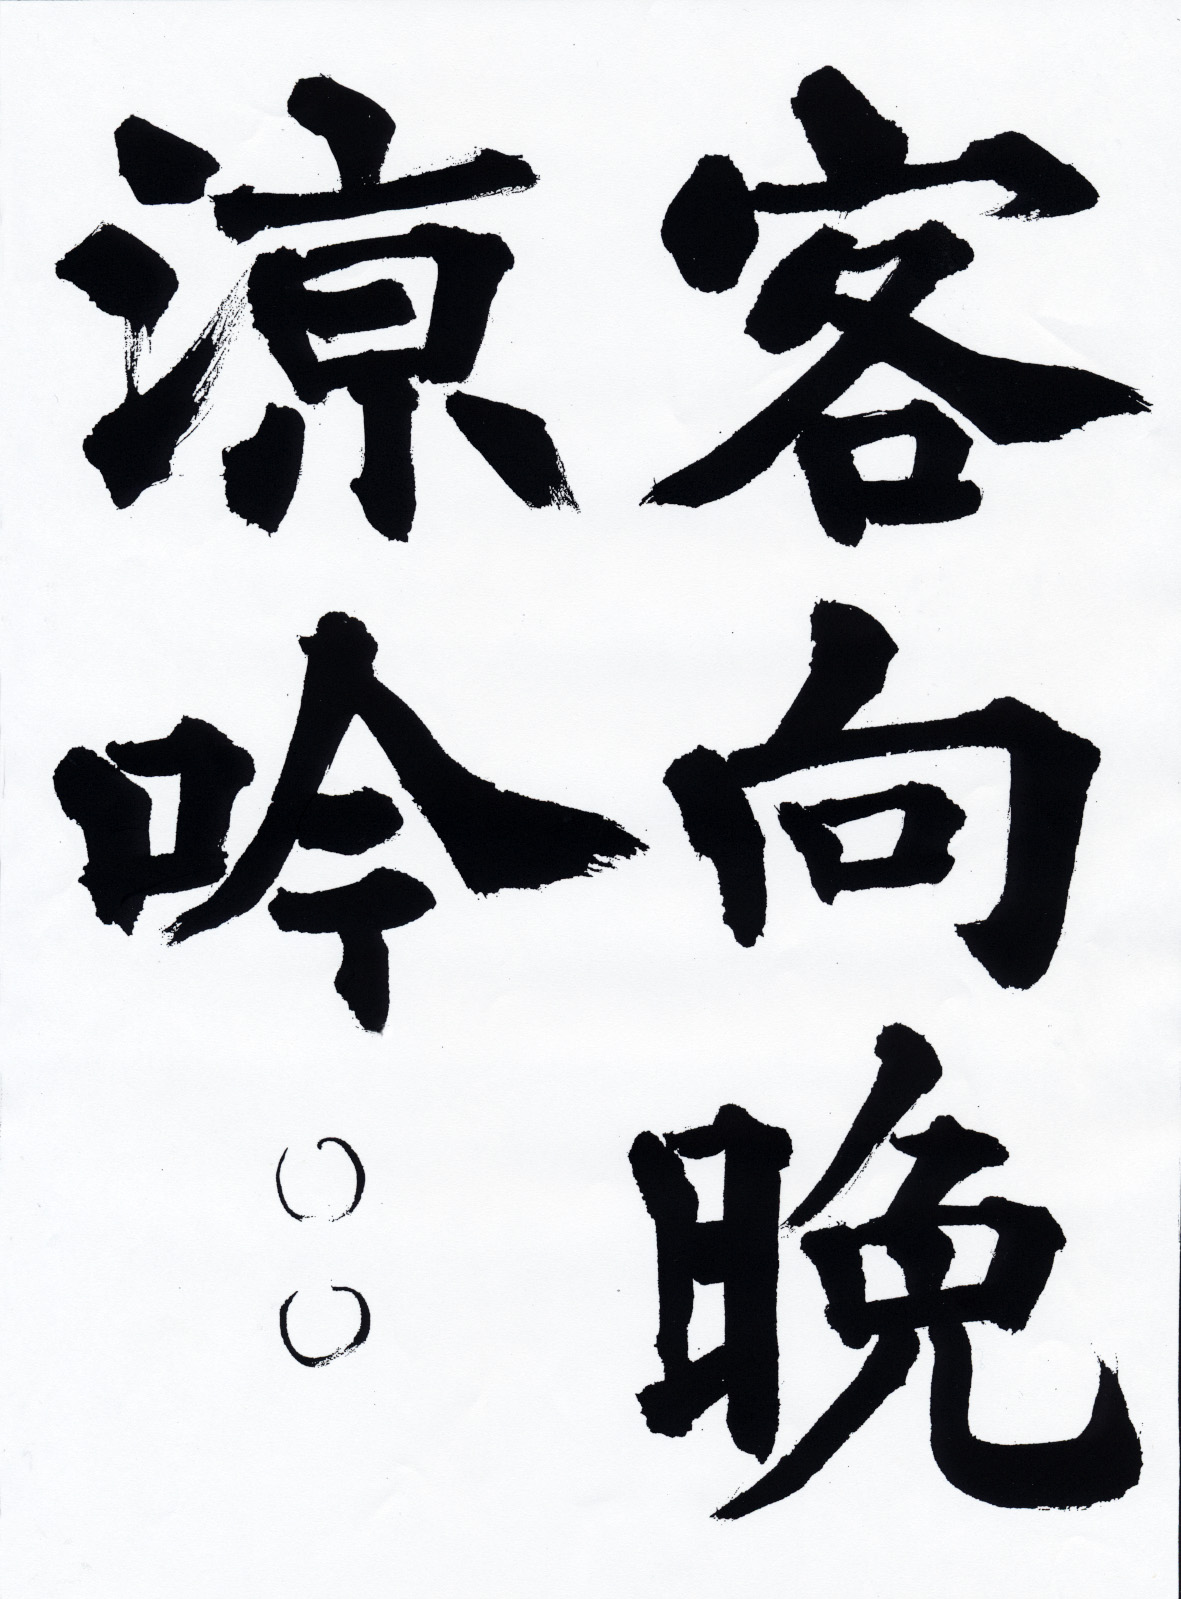 客向晩
涼吟○○